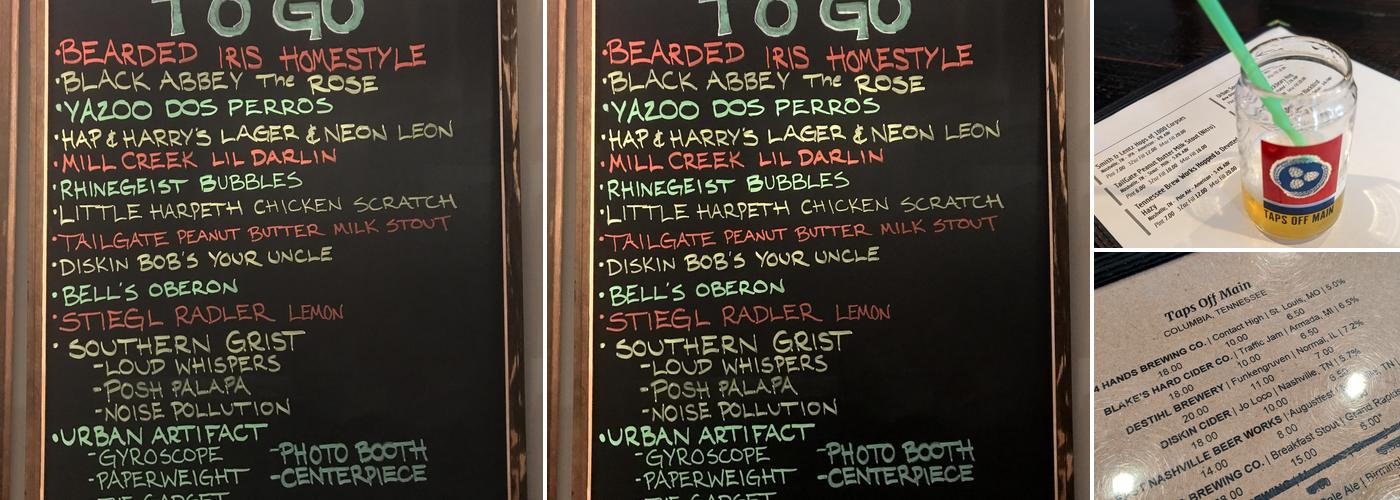 TO GO
•BEARDED IRIS HOMESTYLE
•BLACK ABBEY The ROSE
•YAZOO DOS PERROS
•HAP & HARRY'S LAGER & NEON LEON
•MILL CREEK LIL DARLIN
•RHINEGEIST BUBBLES
•LITTLE HARPETH CHICKEN SCRATCH
•TAILGATE PEANUT BUTTER MILK STOUT
•DISKIN BOB'S YOUR UNCLE
•BELL'S OBERON
•STIEGL RADLER LEMON
•SOUTHERN GRIST
-LOUD WHISPERS
-POSH PALAPA
-NOISE POLLUTION
•URBAN ARTIFACT
-GYROSCOPE -PHOTO BOOTH
-PAPERWEIGHT -CENTERPIECE
TO GO
•BEARDED IRIS HOMESTYLE
•BLACK ABBEY The ROSE
•YAZOO DOS PERROS
•HAP & HARRY'S LAGER & NEON LEON
•MILL CREEK LIL DARLIN
•RHINEGEIST BUBBLES
•LITTLE HARPETH CHICKEN SCRATCH
•TAILGATE PEANUT BUTTER MILK STOUT
•DISKIN BOB'S YOUR UNCLE
•BELL'S OBERON
•STIEGL RADLER LEMON
•SOUTHERN GRIST
-LOUD WHISPERS
-POSH PALAPA
-NOISE POLLUTION
•URBAN ARTIFACT
-GYROSCOPE -PHOTO BOOTH
-PAPERWEIGHT -CENTERPIECE
Smith & Lentz Hops of 1000 Corpses
TailGate Peanut Butter Milk Stout (Nitro)
Tennessee Brew Works Hopped &
Hazy
TAPS OFF MAIN
Taps Off Main
COLUMBIA, TENNESSEE
4 HANDS BREWING CO. | Contact High | St. Louis, MO | 5.0%
18.00 10.00 6.50
BLAKE'S HARD CIDER CO. | Traffic Jam | Armada, MI | 6.5%
18.00 10.00 6.50
DESTIHL BREWERY | Funkengruven | Normal, IL | 7.2%
20.00 11.00 7.00
DISKIN CIDER | Jo Loco | Nashville, TN | 5.7%
18.00 10.00 6.50
NASHVILLE BEER WORKS |
14.00 8.00
BREWING CO. | Breakfast Stout | Grand
15.00